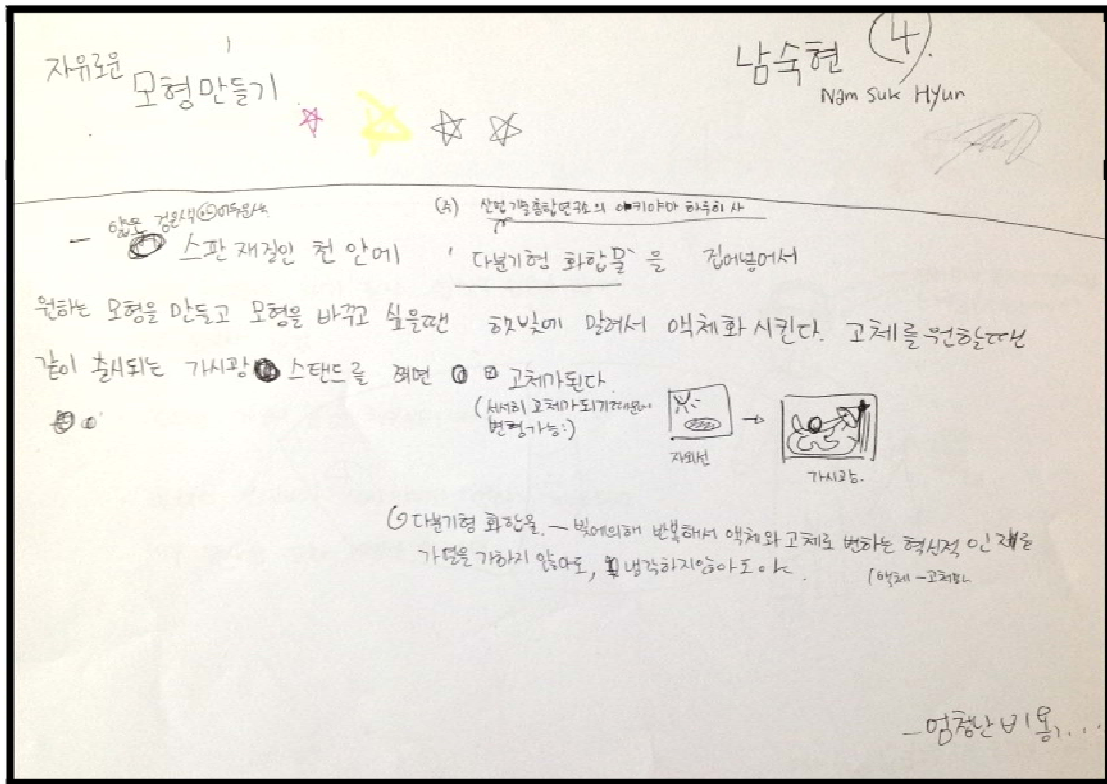 자유로운
모형만들기
남숙현 4.
Nam Suk Hyun
(주) 산업기술종합연구소의 아키야마 하루히사
얇은 검은색
스판 재질인 천 안에 '다분기형 화합물'을 집어넣어서
원하는 모형을 만들고 모형을 바꾸고 싶을땐 햇빛에 말려서 액체화 시킨다. 고체를 원할때면
같이 출시되는 가시광 스탠드를 쬐면 고체가된다.
(서서히 고체가되기때문에
변형가능:)
자외선
가시광.
다분기형 화합물. - 빛에의해 반복해서 액체와 고체로 변하는 혁신적인 재료
가열을 가하지 않아도, 냉각하지않아도
(액체-고체
- 엄청난 비용....